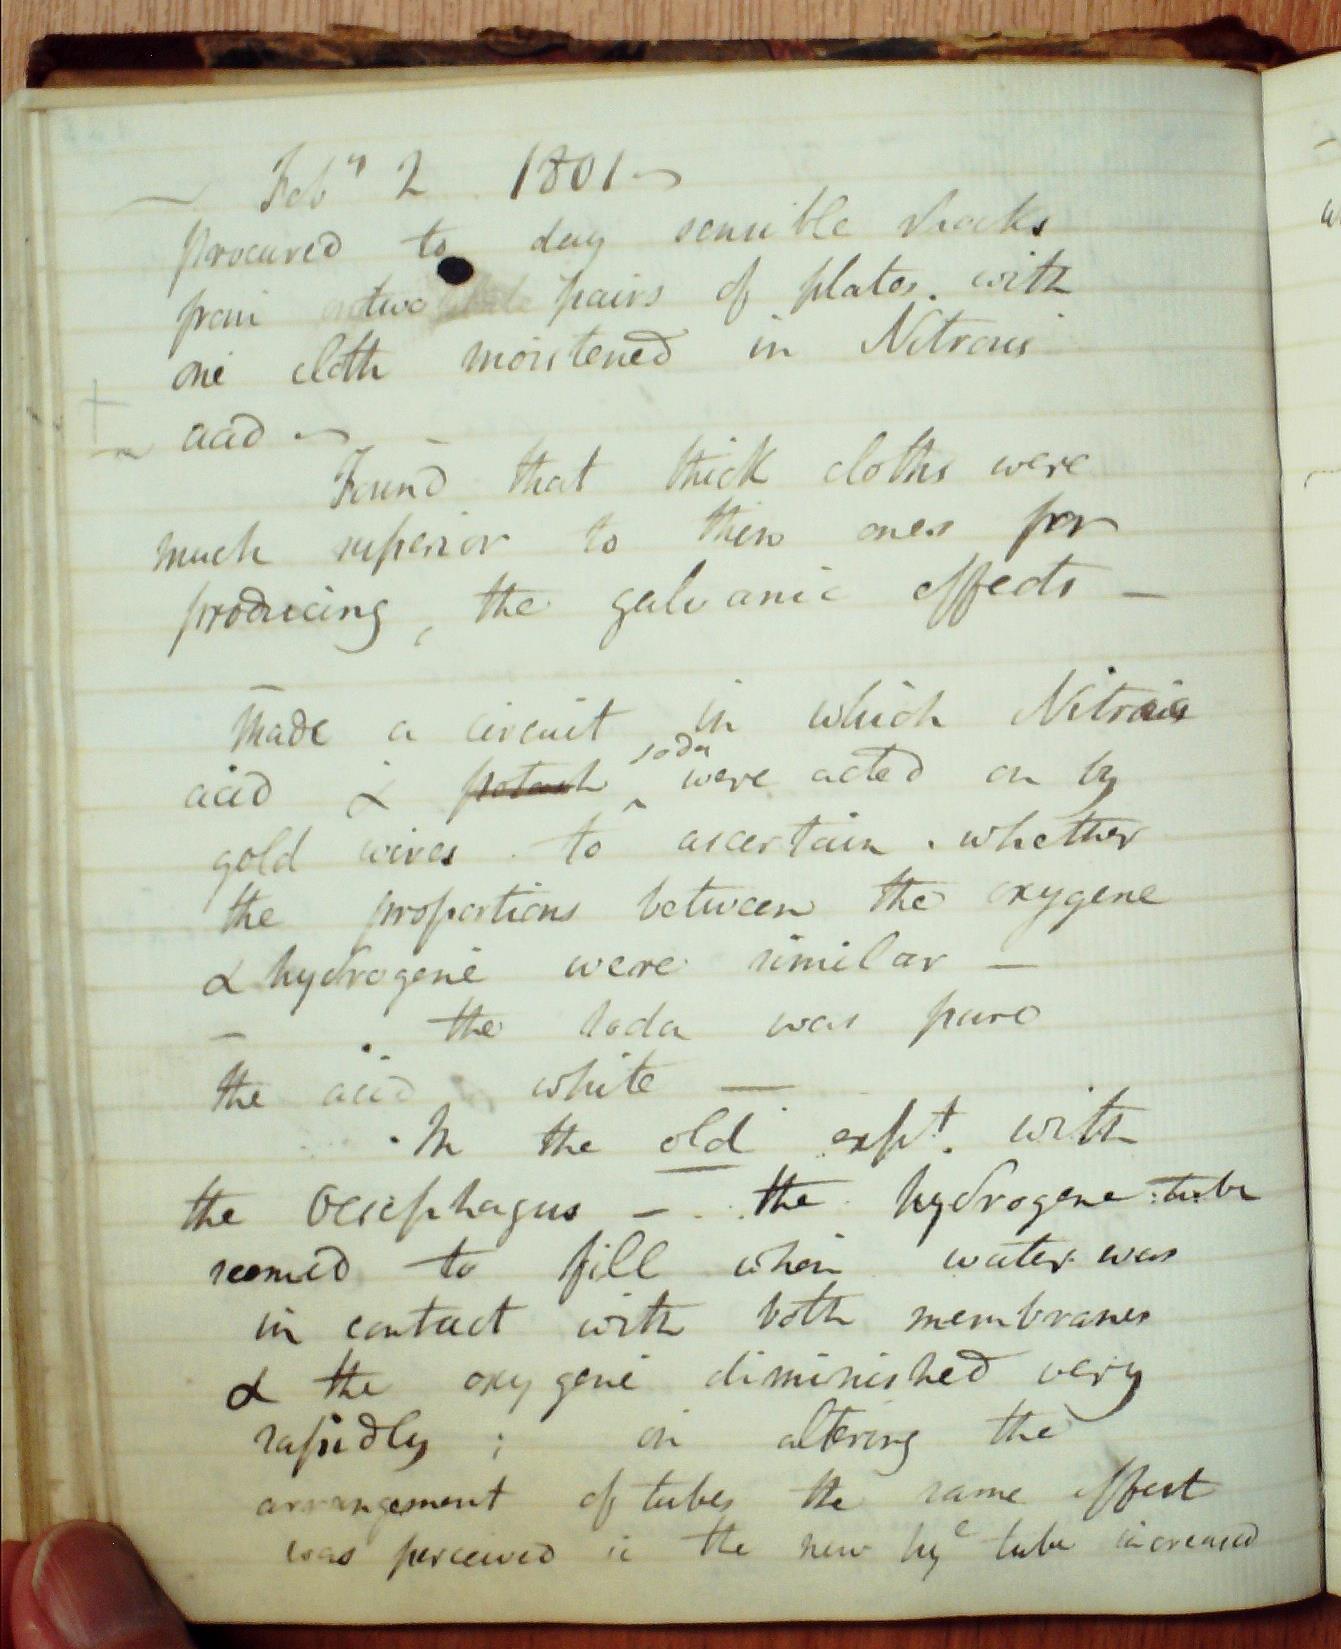 Feby 2 1801 —
procured to day sensible shocks
from two pairs of plates. with
one cloth moistened in Nitrous
acid —
Found that thick cloths were
much superior to thin ones for
producing, the galvanic effects —
Made a circuit in which Nitrous
acid & potash soda were acted on by
gold wires to ascertain. whether
the proportions between the oxygene
& hydrogene were similar —
— . the soda was pure
the acid white —
In the old expt. with
the Oesephagus — the hydrogene tube
seemed to fill when water was
in contact with both membranes
& the oxygene diminished very
rapidly ; on altering the
arrangement of tubes the same effect
was perceived ie the new hye tube increased